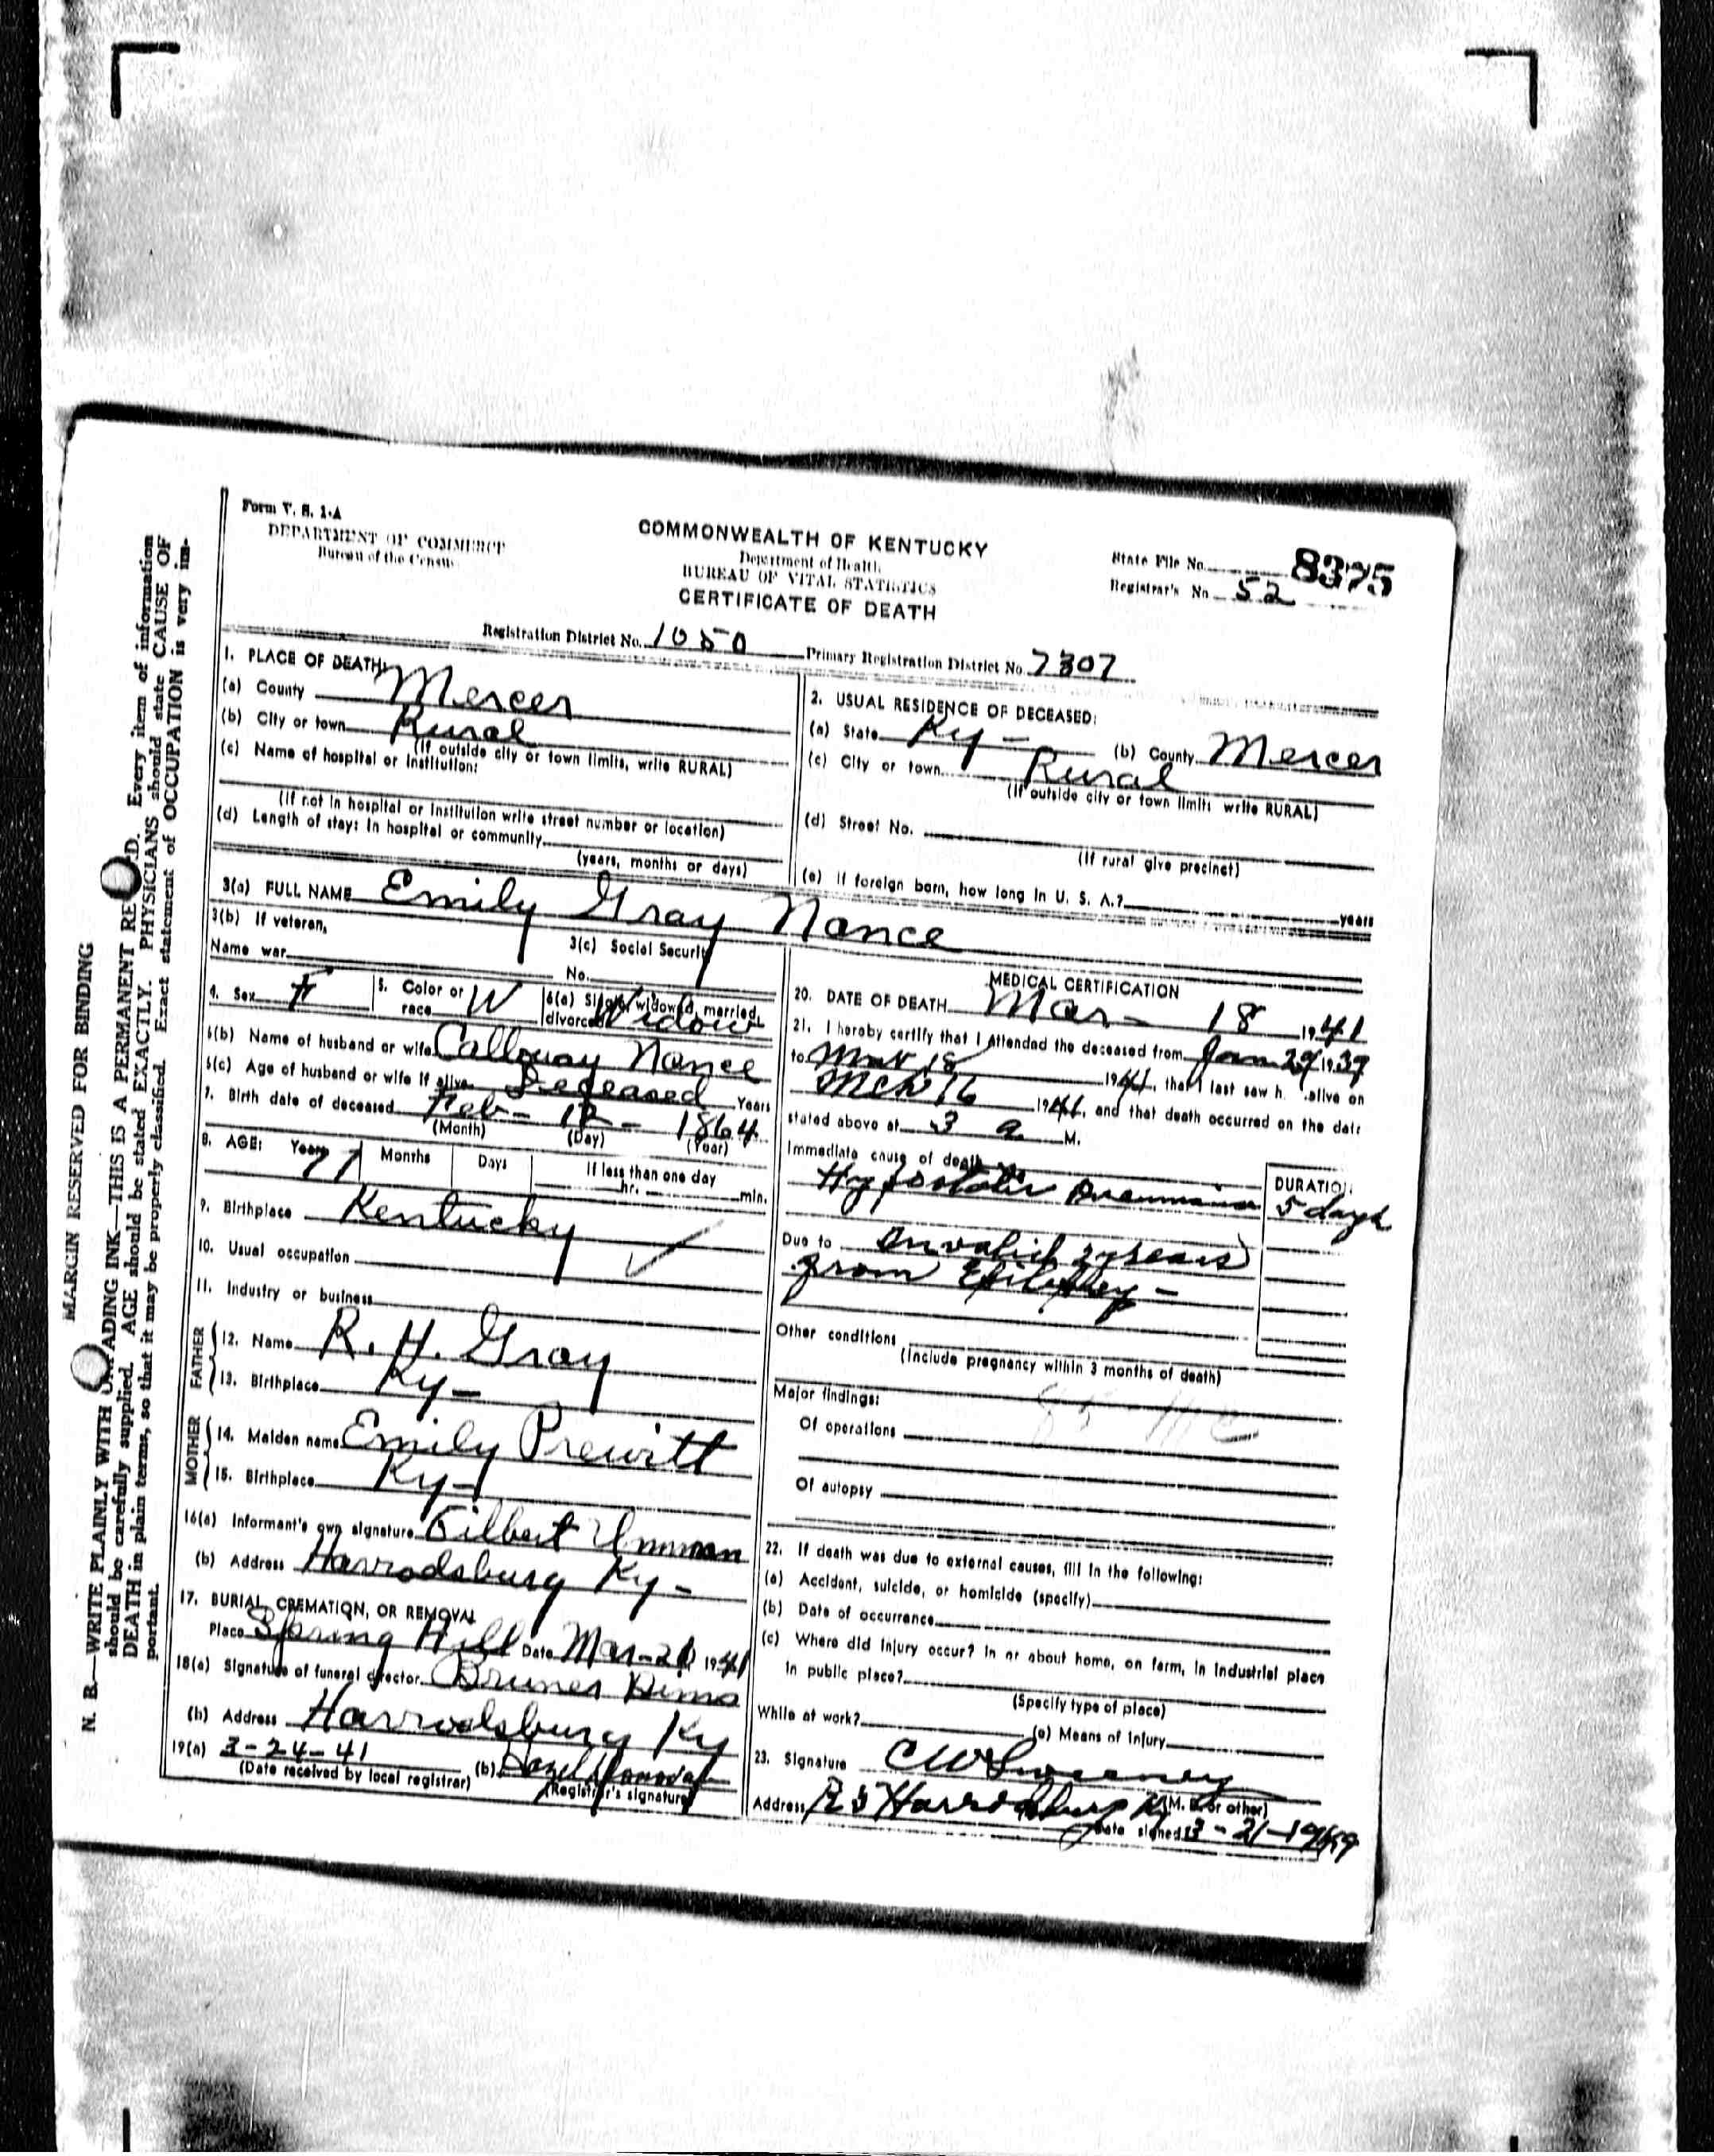 MARGIN RESERVED FOR BINDING
N. B.—WRITE PLAINLY WITH UNFADING INK—THIS IS A PERMANENT RECORD. Every item of information
should be carefully supplied. AGE should be stated EXACTLY. PHYSICIANS should state CAUSE OF
DEATH in plain terms, so that it may be properly classified. Exact statement of OCCUPATION is very im-
portant.
Form V. S. 1-A
DEPARTMENT OF COMMERCE
Bureau of the Census
COMMONWEALTH OF KENTUCKY
Department of Health
BUREAU OF VITAL STATISTICS
CERTIFICATE OF DEATH
State File No. 8375
Registrar's No. 52
Registration District No. 1050 Primary Registration District No. 7307
1. PLACE OF DEATH:
(a) County Mercer
(b) City or town Rural
(If outside city or town limits, write RURAL)
(c) Name of hospital or institution:
(If not in hospital or institution write street number or location)
(d) Length of stay: In hospital or community
(years, months or days)
2. USUAL RESIDENCE OF DECEASED:
(a) State Ky - (b) County Mercer
(c) City or town Rural
(If outside city or town limits write RURAL)
(d) Street No.
(If rural give precinct)
(e) If foreign born, how long in U. S. A.? years
3(a) FULL NAME Emily Gray Nance
3(b) If veteran,
Name war
3(c) Social Security
No.
4. Sex F 5. Color or race W 6(a) Single, widowed, married, divorced Widow
6(b) Name of husband or wife Calloway Nance
6(c) Age of husband or wife if alive Deceased Years
7. Birth date of deceased Feb - 12 - 1864
(Month) (Day) (Year)
8. AGE: Years 77 Months Days If less than one day
hr. min.
9. Birthplace Kentucky
10. Usual occupation
11. Industry or business
FATHER
12. Name R. H. Gray
13. Birthplace Ky -
MOTHER
14. Maiden name Emily Prewitt
15. Birthplace Ky -
16(a) Informant's own signature Gilbert
(b) Address Harrodsburg Ky -
17. BURIAL, CREMATION, OR REMOVAL
Place Spring Hill Date Mar - 20 1941
18(a) Signature of funeral director Bruner
(b) Address Harrodsburg Ky
19(a) 3-24-41 (b) Hazel
(Date received by local registrar) (Registrar's signature)
MEDICAL CERTIFICATION
20. DATE OF DEATH Mar - 18 1941
21. I hereby certify that I attended the deceased from Jan 29 1939
to Mar 18 1941, that I last saw h alive on
Mch 16 1941, and that death occurred on the date
stated above at 3 a M.
Immediate cause of death DURATION
Hypostatic Pneumonia 5 days
Due to Invalid 2 years
from Epilepsy -
Other conditions
(Include pregnancy within 3 months of death)
Major findings:
Of operations
Of autopsy
22. If death was due to external causes, fill in the following:
(a) Accident, suicide, or homicide (specify)
(b) Date of occurrence
(c) Where did injury occur? In or about home, on farm, in industrial place
in public place?
(Specify type of place)
While at work? (e) Means of injury
23. Signature C W Sweeney
(M. D. or other)
Address Harrodsburg Ky
Date signed 3-21-19